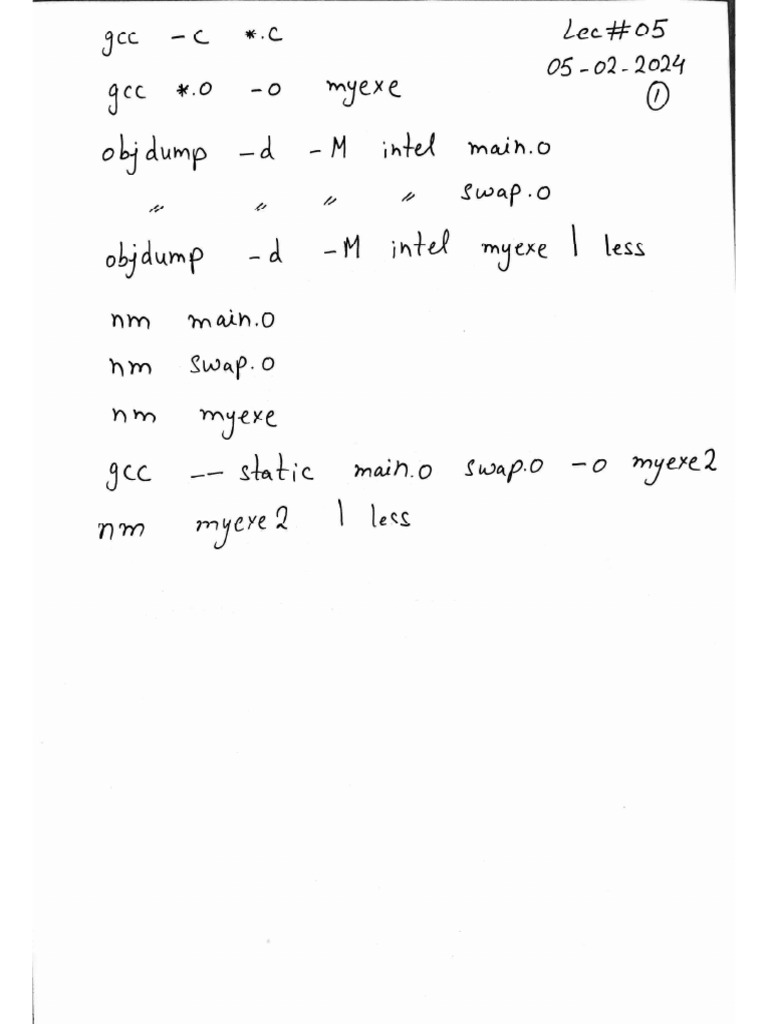 Lec#05
05-02-2024
1
gcc -c *.c
gcc *.o -o myexe
objdump -d -M intel main.o
〃 〃 〃 〃 swap.o
objdump -d -M intel myexe | less
nm main.o
nm swap.o
nm myexe
gcc --static main.o swap.o -o myexe2
nm myexe2 | less